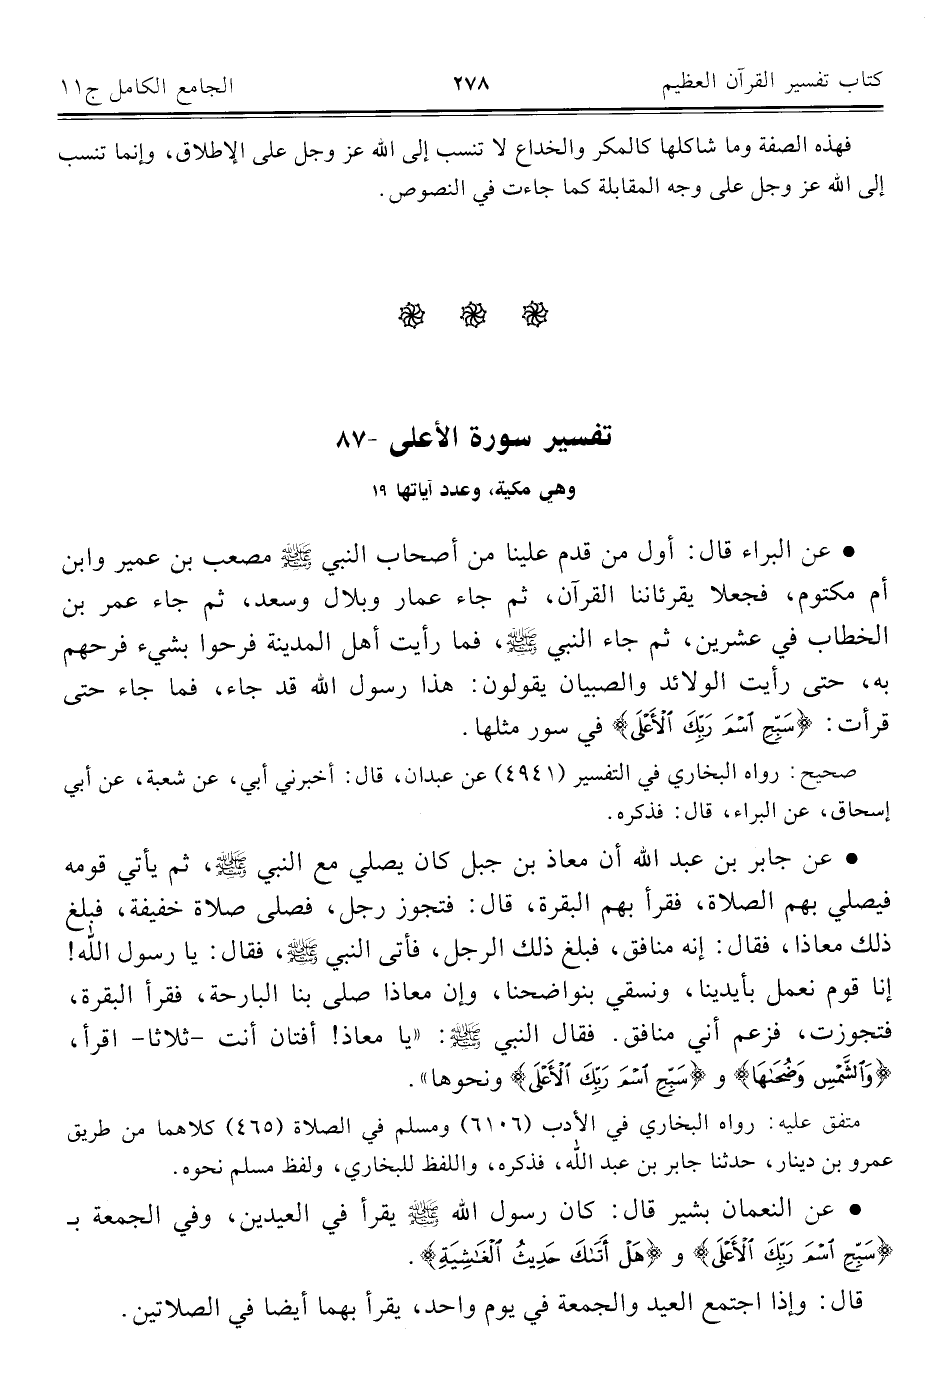 كتاب تفسير القرآن العظيم ٢٧٨ الجامع الكامل ج١١
فهذه الصفة وما شاكلها كالمكر والخداع لا تنسب إلى الله عز وجل على الإطلاق، وإنما تنسب
إلى الله عز وجل على وجه المقابلة كما جاءت في النصوص.
تفسير سورة الأعلى -٨٧
وهي مكية، وعدد آياتها ١٩
• عن البراء قال: أول من قدم علينا من أصحاب النبي ﷺ مصعب بن عمير وابن
أم مكتوم، فجعلا يقرئاننا القرآن، ثم جاء عمار وبلال وسعد، ثم جاء عمر بن
الخطاب في عشرين، ثم جاء النبي ﷺ، فما رأيت أهل المدينة فرحوا بشيء فرحهم
به، حتى رأيت الولائد والصبيان يقولون: هذا رسول الله قد جاء، فما جاء حتى
قرأت: ﴿سَبِّحِ ٱسْمَ رَبِّكَ ٱلْأَعْلَى﴾ في سور مثلها.
صحيح: رواه البخاري في التفسير (٤٩٤١) عن عبدان، قال: أخبرني أبي، عن شعبة، عن أبي
إسحاق، عن البراء، قال: فذكره.
• عن جابر بن عبد الله أن معاذ بن جبل كان يصلي مع النبي ﷺ، ثم يأتي قومه
فيصلي بهم الصلاة، فقرأ بهم البقرة، قال: فتجوز رجل، فصلى صلاة خفيفة، فبلغ
ذلك معاذا، فقال: إنه منافق، فبلغ ذلك الرجل، فأتى النبي ﷺ، فقال: يا رسول الله!
إنا قوم نعمل بأيدينا، ونسقي بنواضحنا، وإن معاذا صلى بنا البارحة، فقرأ البقرة،
فتجوزت، فزعم أني منافق. فقال النبي ﷺ: «يا معاذ! أفتان أنت -ثلاثا- اقرأ،
﴿وَٱلشَّمْسِ وَضُحَىٰهَا﴾ و ﴿سَبِّحِ ٱسْمَ رَبِّكَ ٱلْأَعْلَى﴾ ونحوها».
متفق عليه: رواه البخاري في الأدب (٦١٠٦) ومسلم في الصلاة (٤٦٥) كلاهما من طريق
عمرو بن دينار، حدثنا جابر بن عبد الله، فذكره، واللفظ للبخاري، ولفظ مسلم نحوه.
• عن النعمان بشير قال: كان رسول الله ﷺ يقرأ في العيدين، وفي الجمعة بـ
﴿سَبِّحِ ٱسْمَ رَبِّكَ ٱلْأَعْلَى﴾ و ﴿هَلْ أَتَىٰكَ حَدِيثُ ٱلْغَـٰشِيَةِ﴾.
قال: وإذا اجتمع العيد والجمعة في يوم واحد، يقرأ بهما أيضا في الصلاتين.